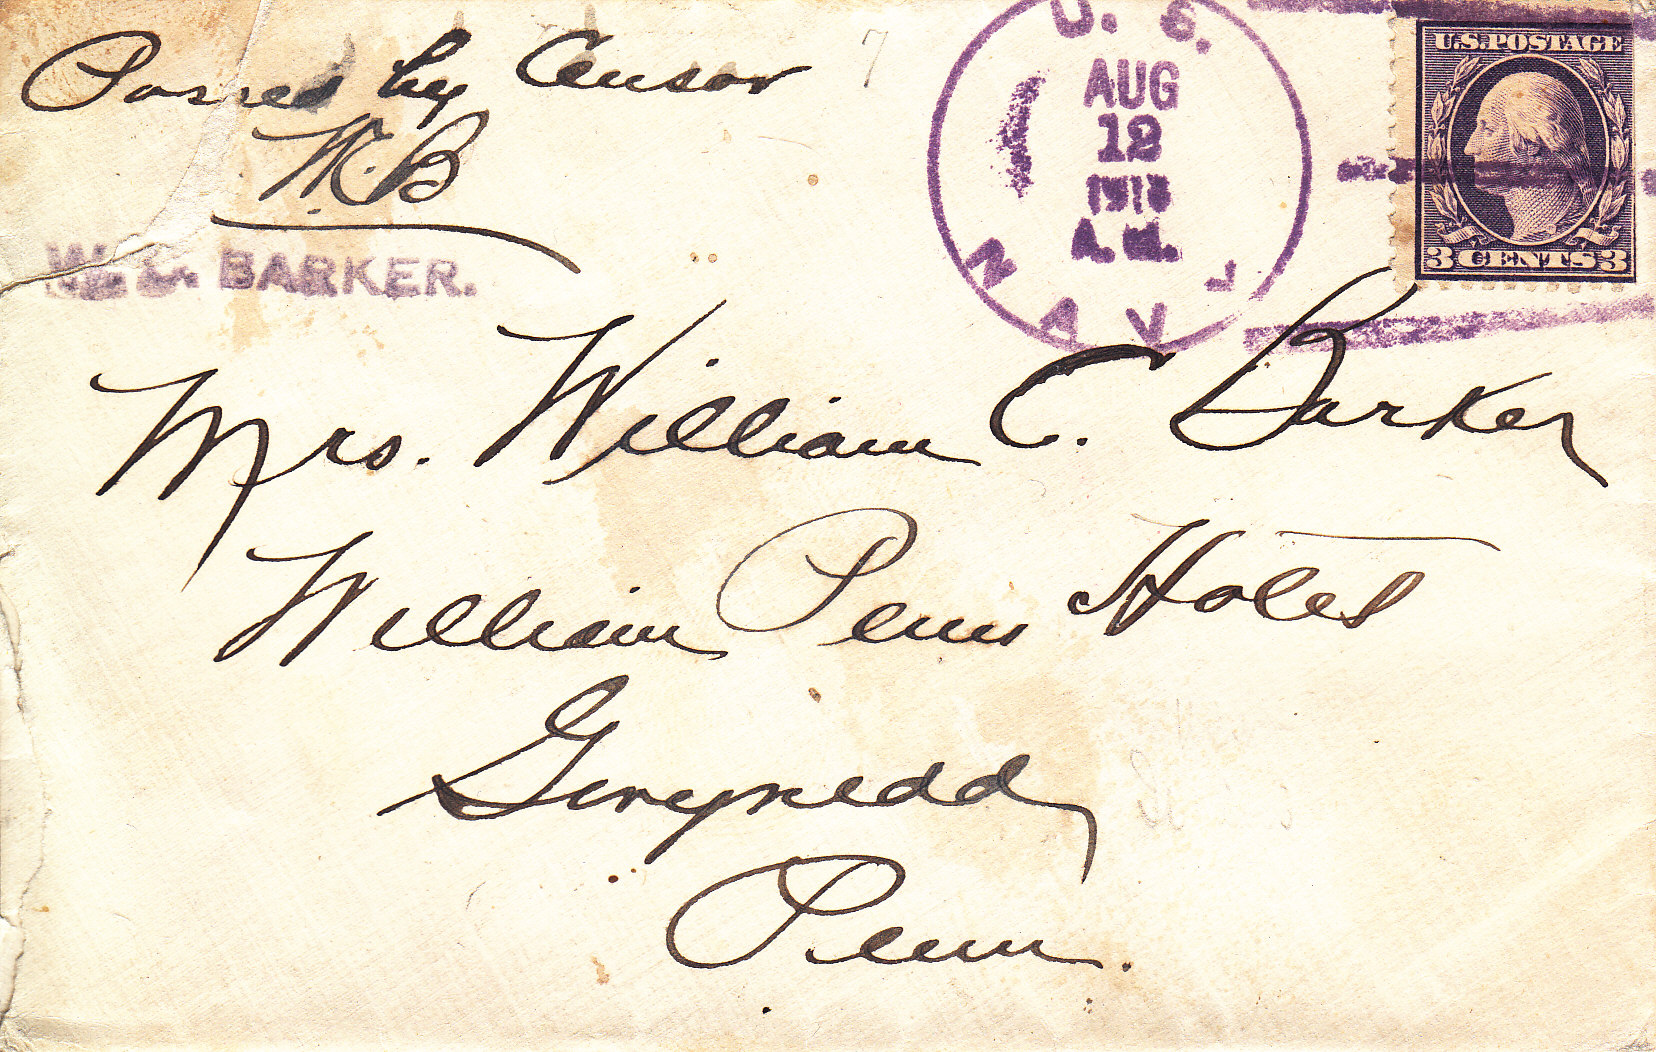 Passed by Censor
W.B
7
W. C. BARKER.
U. S.
AUG
12
1918
A.M.
NAVY
U.S. POSTAGE
3 CENTS 3
Mrs. William C. Barker
William Penn Hotel
Gwynedd
Penn.